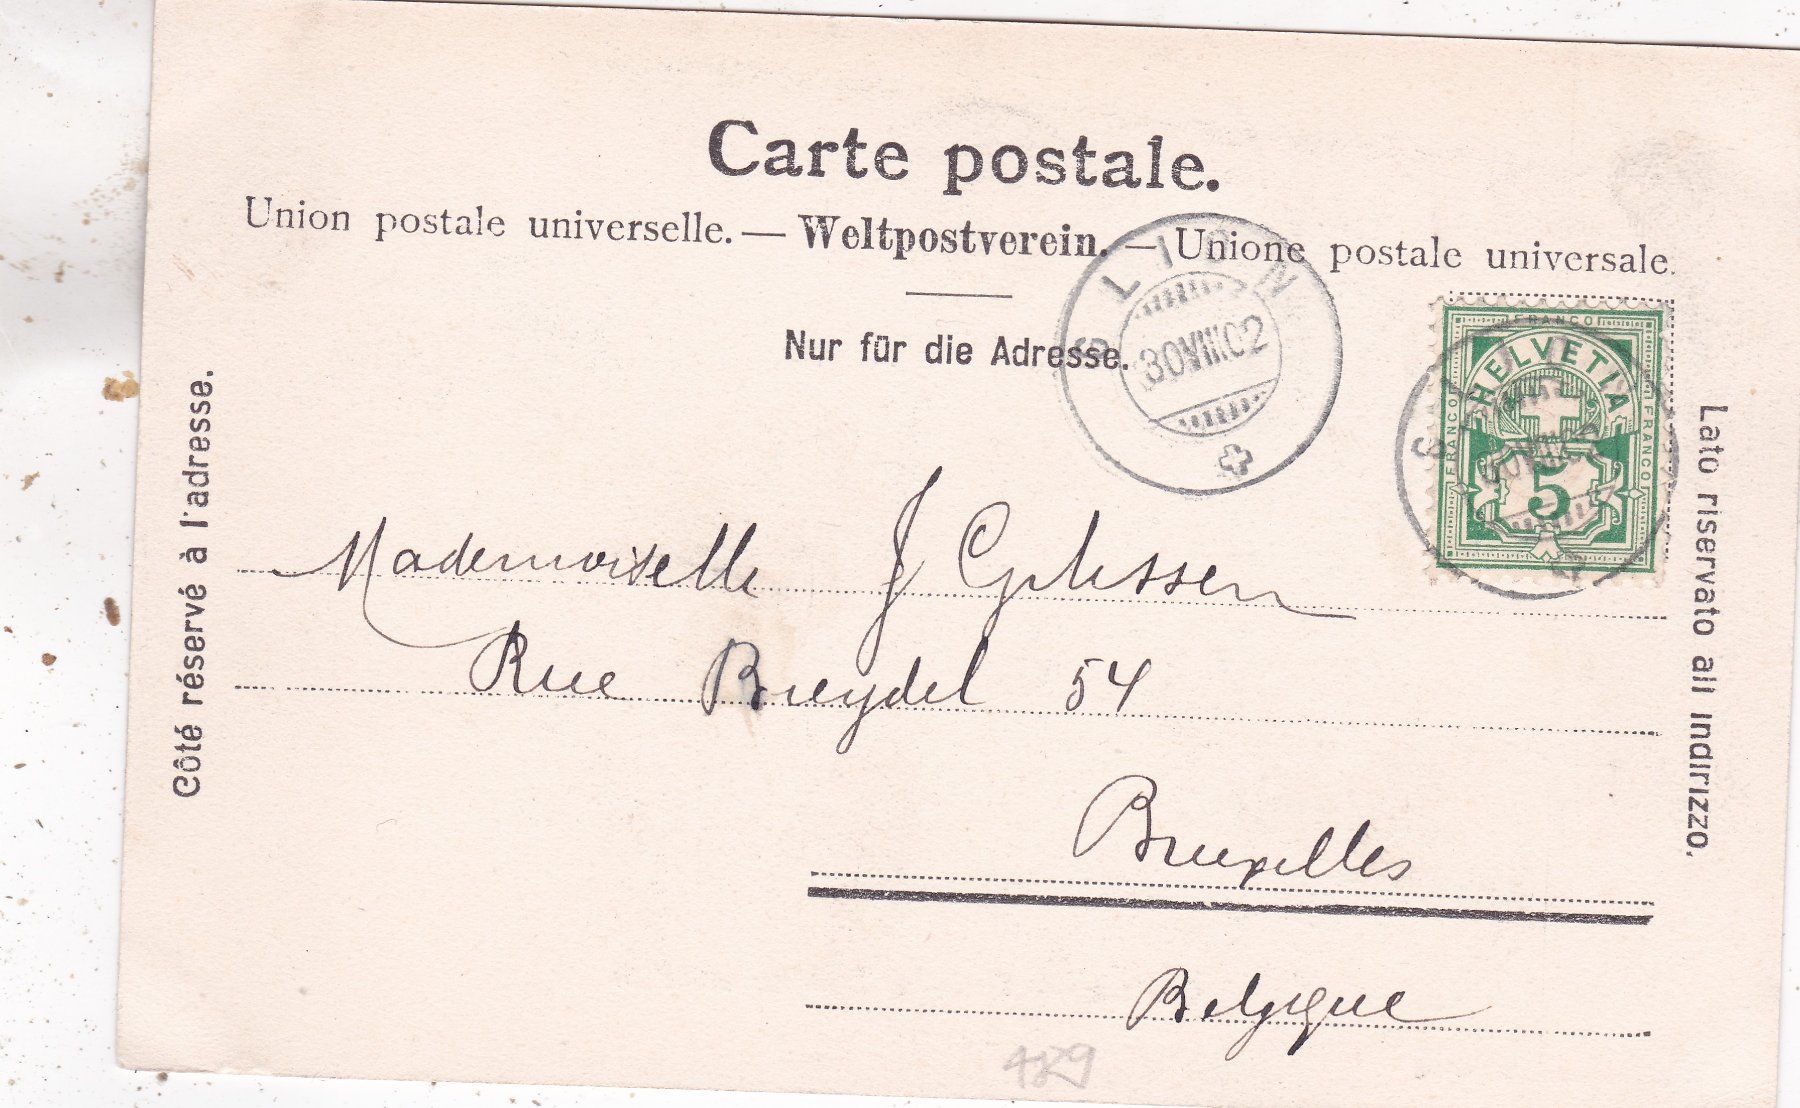 Carte postale.
Union postale universelle. — Weltpostverein. — Unione postale universale.
Nur für die Adresse.
Côté réservé à l'adresse.
Lato riservato all indirizzo.
30 VIII 02
FRANCO
HELVETIA
FRANCO
FRANCO
5
Mademoiselle J
Rue Breydel 54
Bruxelles
Belgique
489